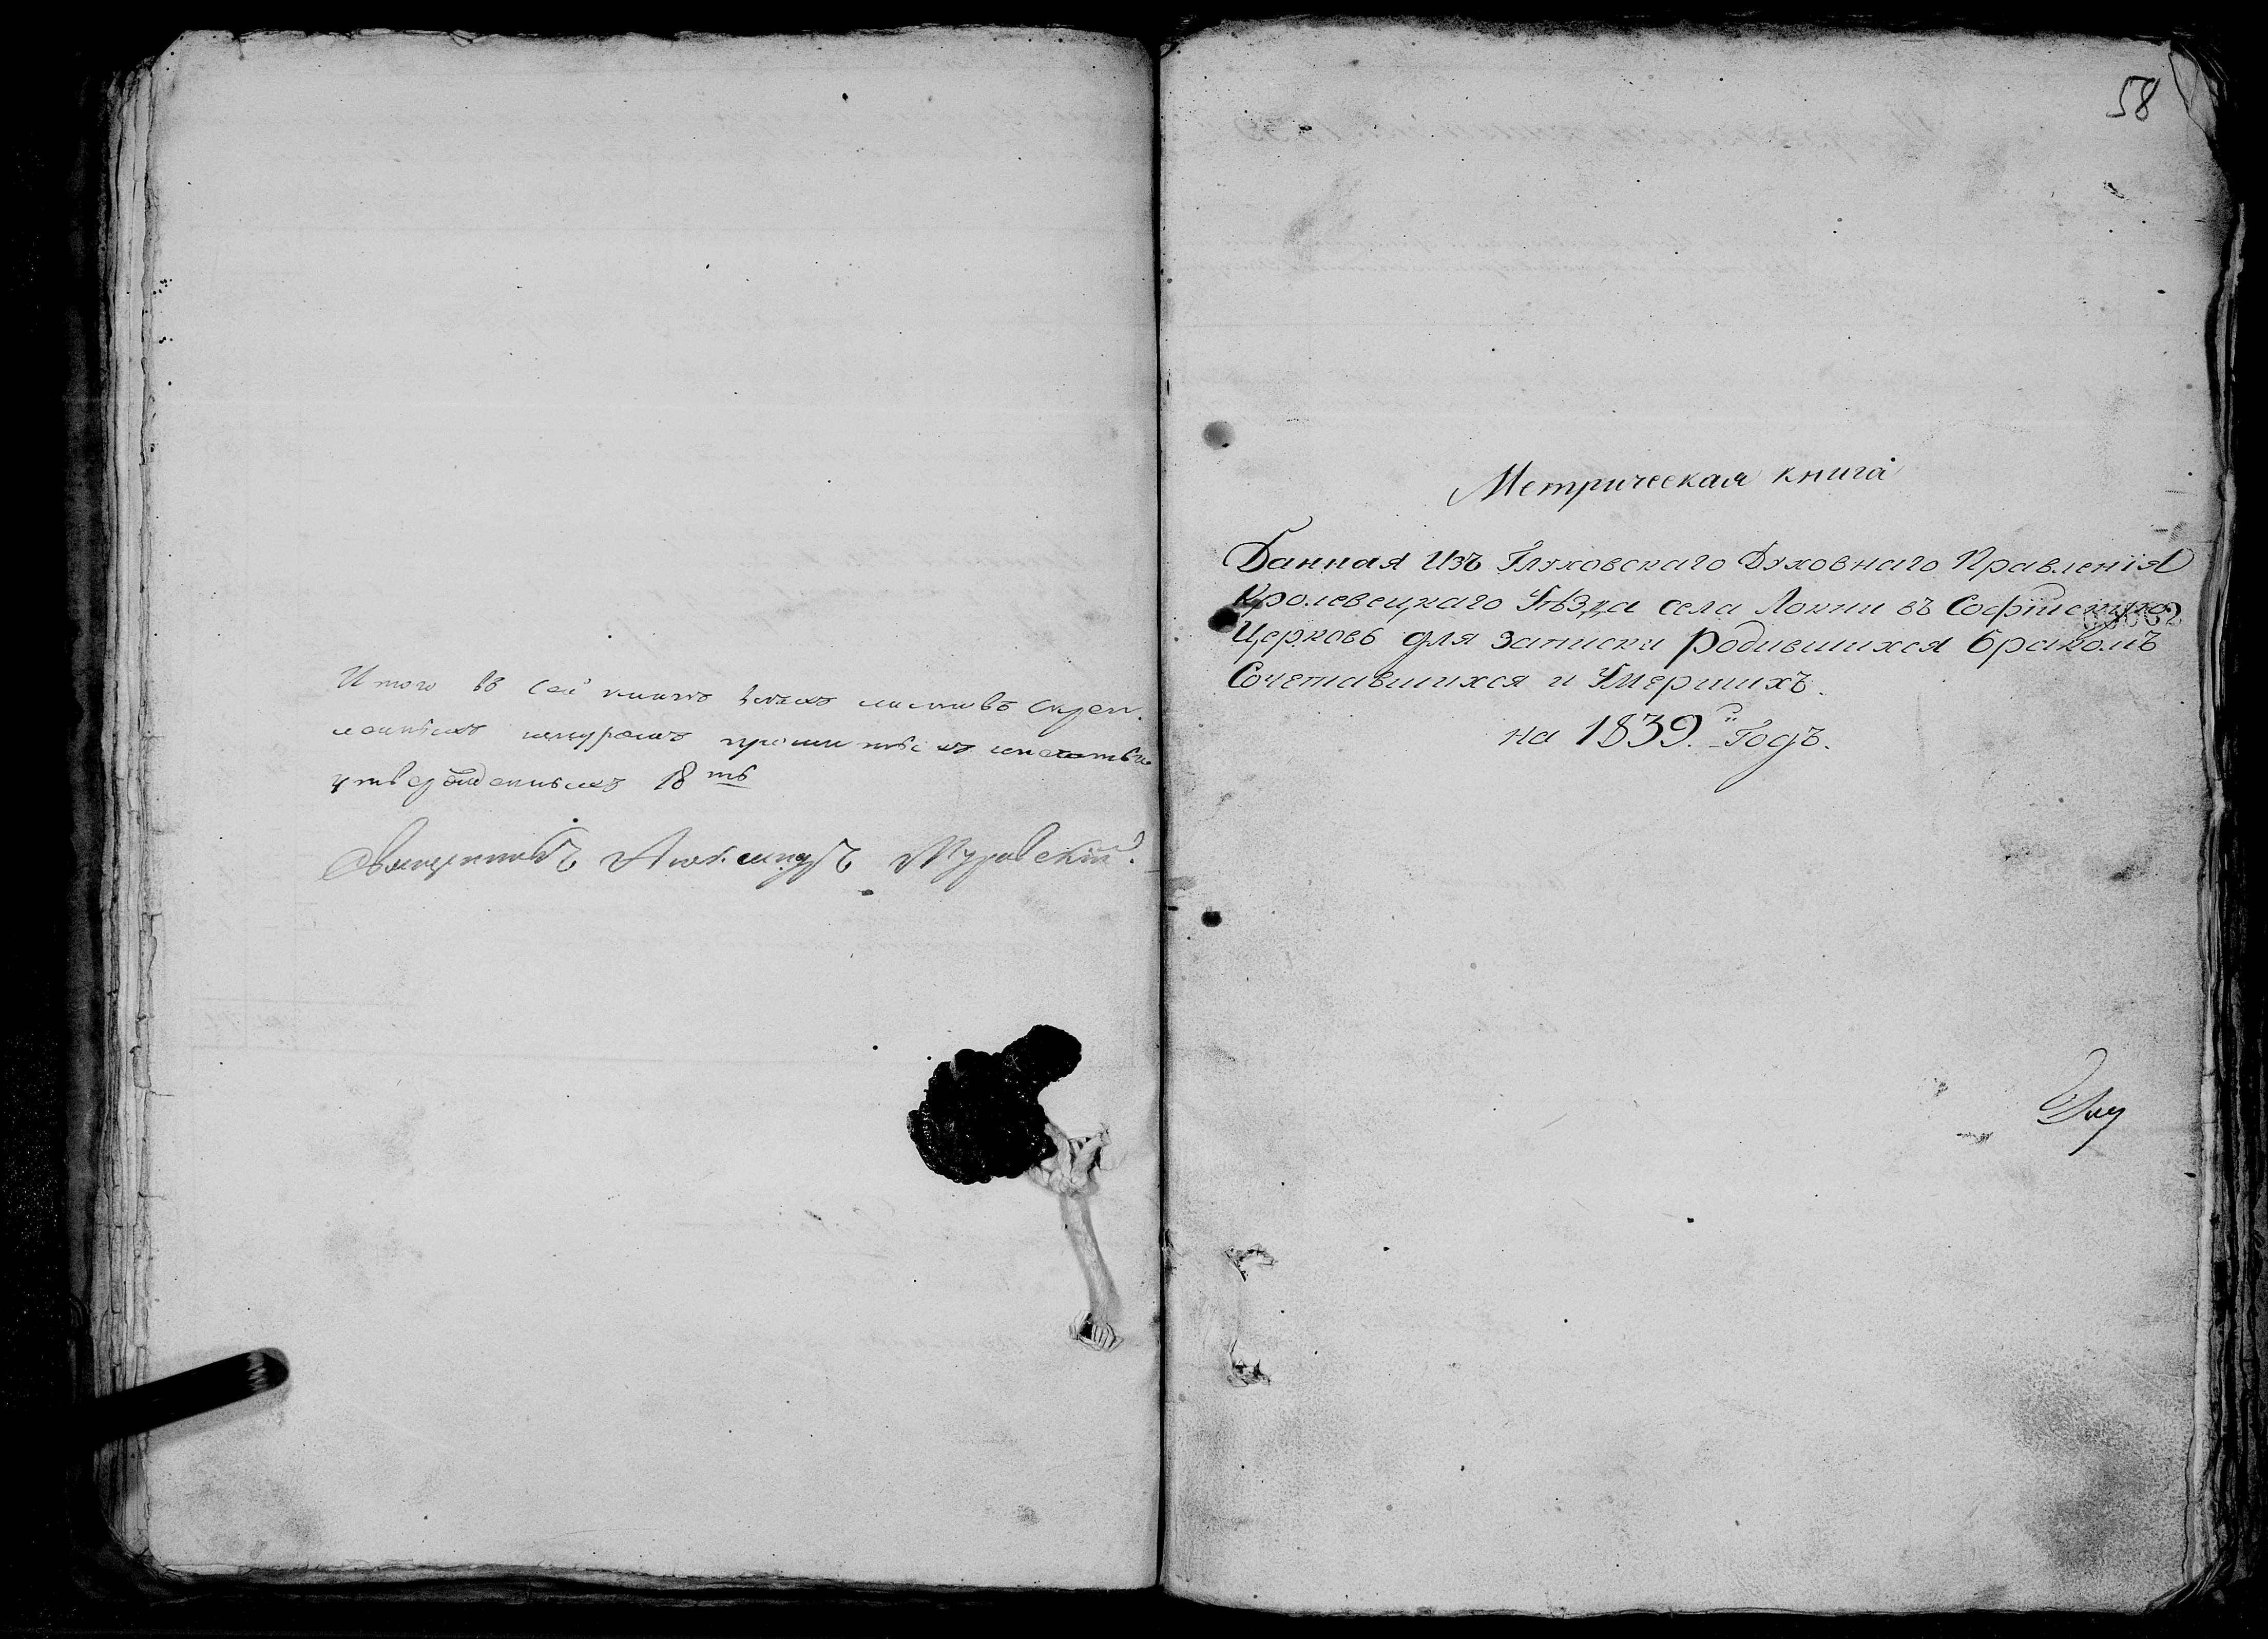 Итого въ сей книгѣ всѣхъ листовъ скреп
леннихъ шнуромъ прошитыхъ и печатью
утвержденныхъ 18ть
Священникъ Александръ Муровскій.
58
Метрическая книга
Данная Изъ Глуховскаго Духовнаго Правленія
Кролевецкаго Уѣзда села Локни въ Софійскую
Церковь для записки родившихся бракомъ
Сочетавшихся и Умершихъ.
на 1839.й Годъ.